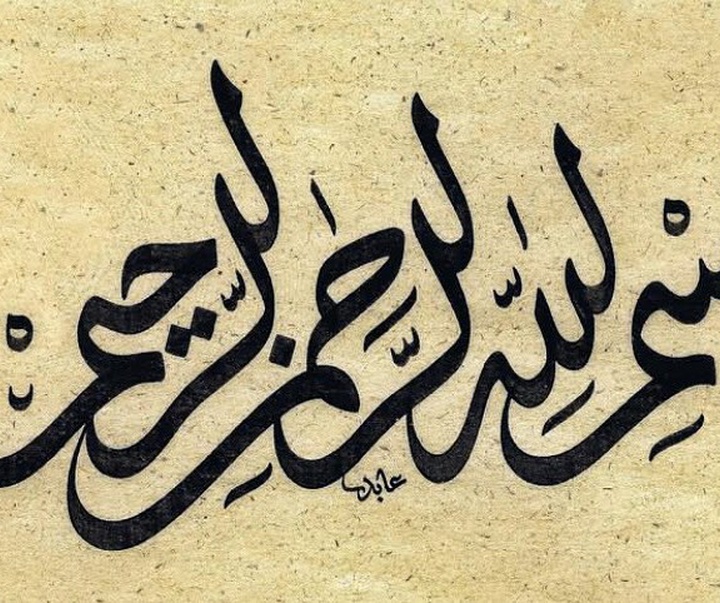 بِسْمِ اللَّهِ الرَّحْمَٰنِ الرَّحِيمِ
عابد